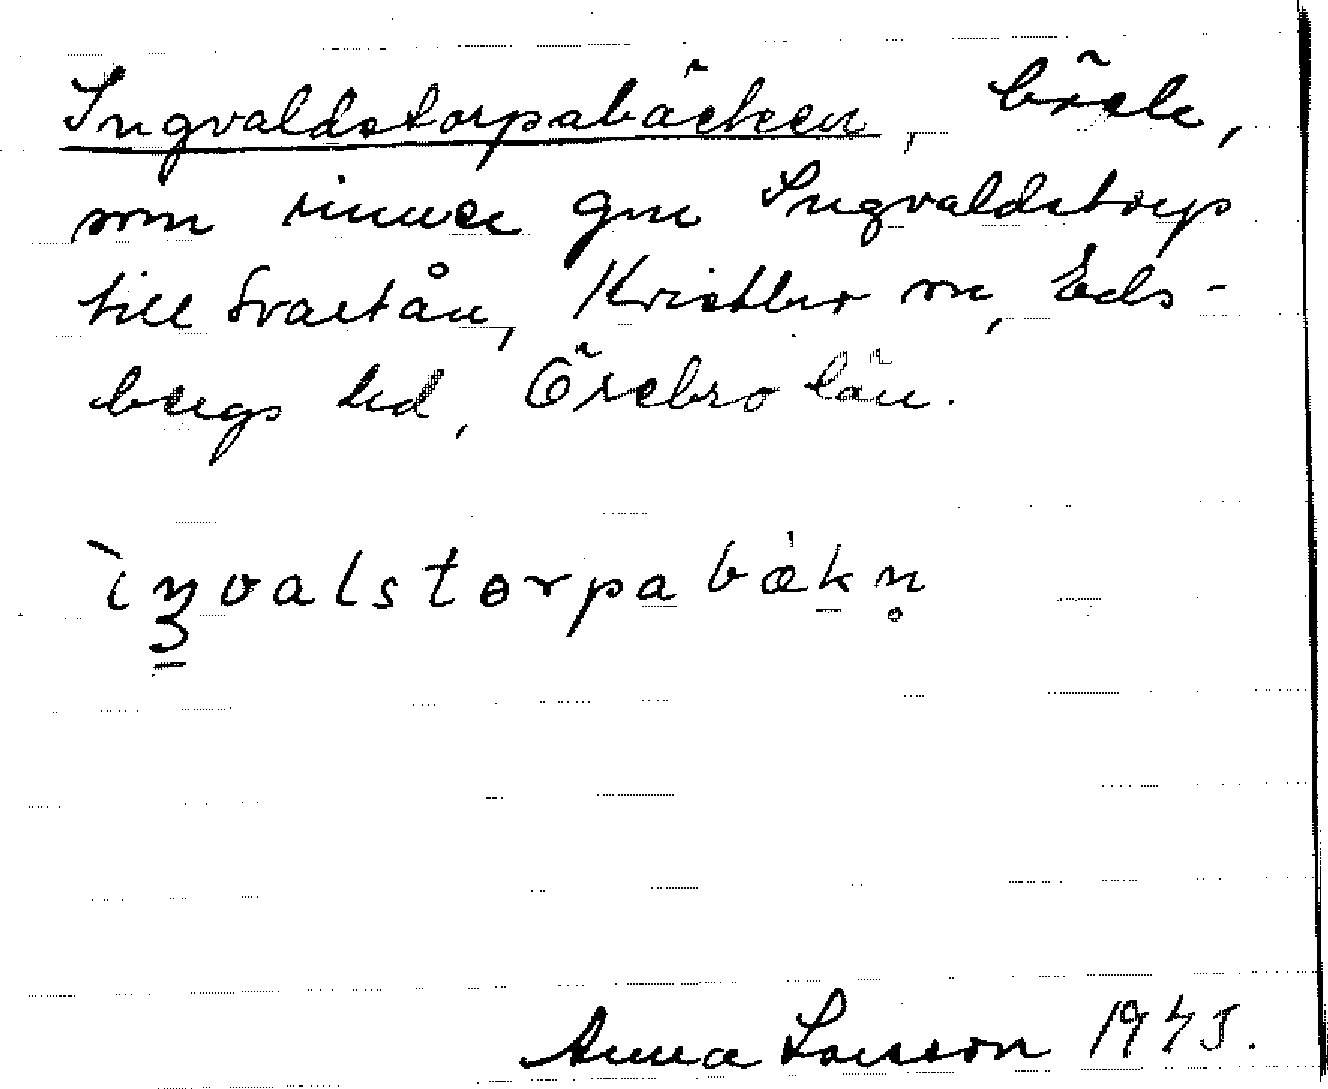 Ingvaldstorpabäcken, bäck,
som rinner gm Ingvaldstorp
till Svartån, Knista sn, Eds-
bergs hd, Örebro län.
ìŋvalstorpabǽkn̥
Anna Larsson 1945.